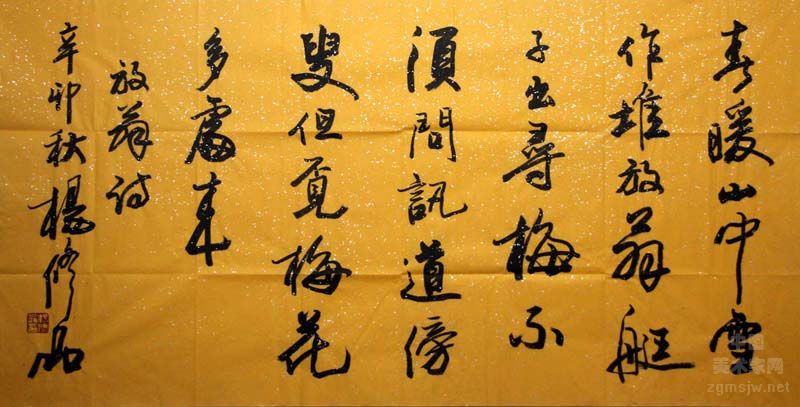 春暖山中雪
作堆放翁艇
子出尋梅不
須問訊道傍
叟但覓梅花
多處来
放翁诗
辛卯秋楊修
中国
美术家网
zgmsjw.net